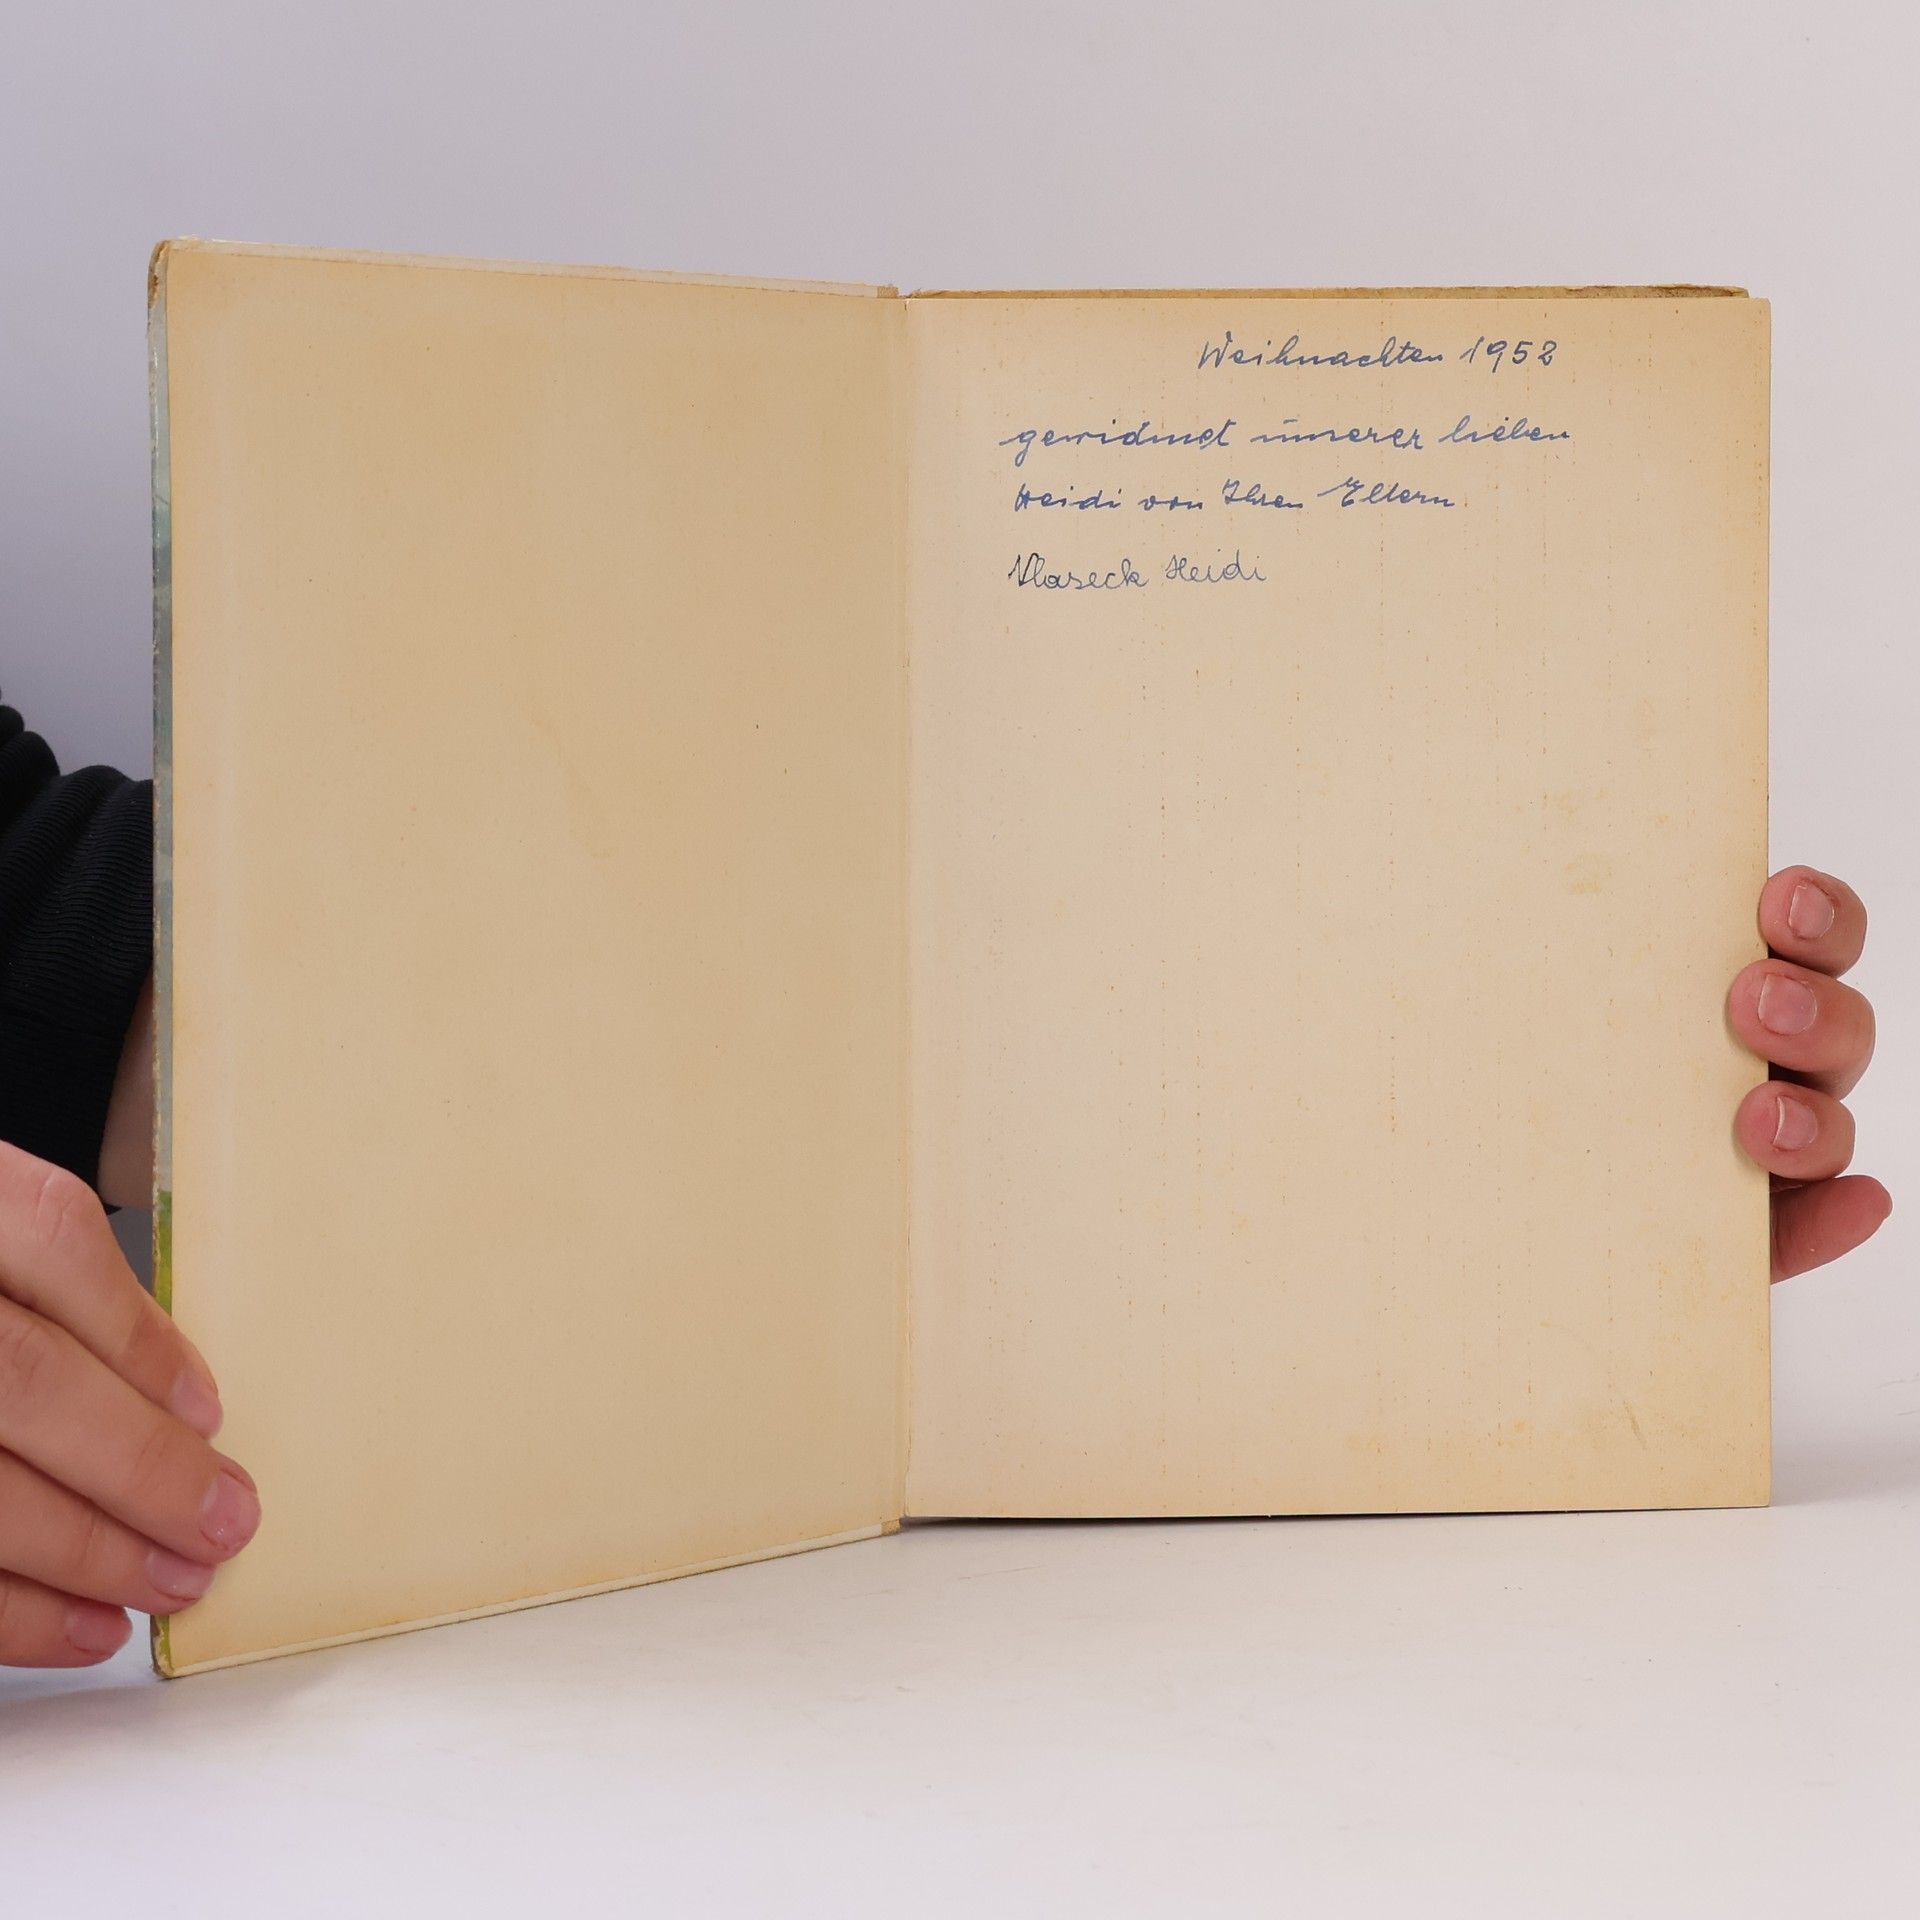 Weihnachten 1952
gewidmet unserer lieben
Heidi von Ihren Eltern
Vlaseck Heidi